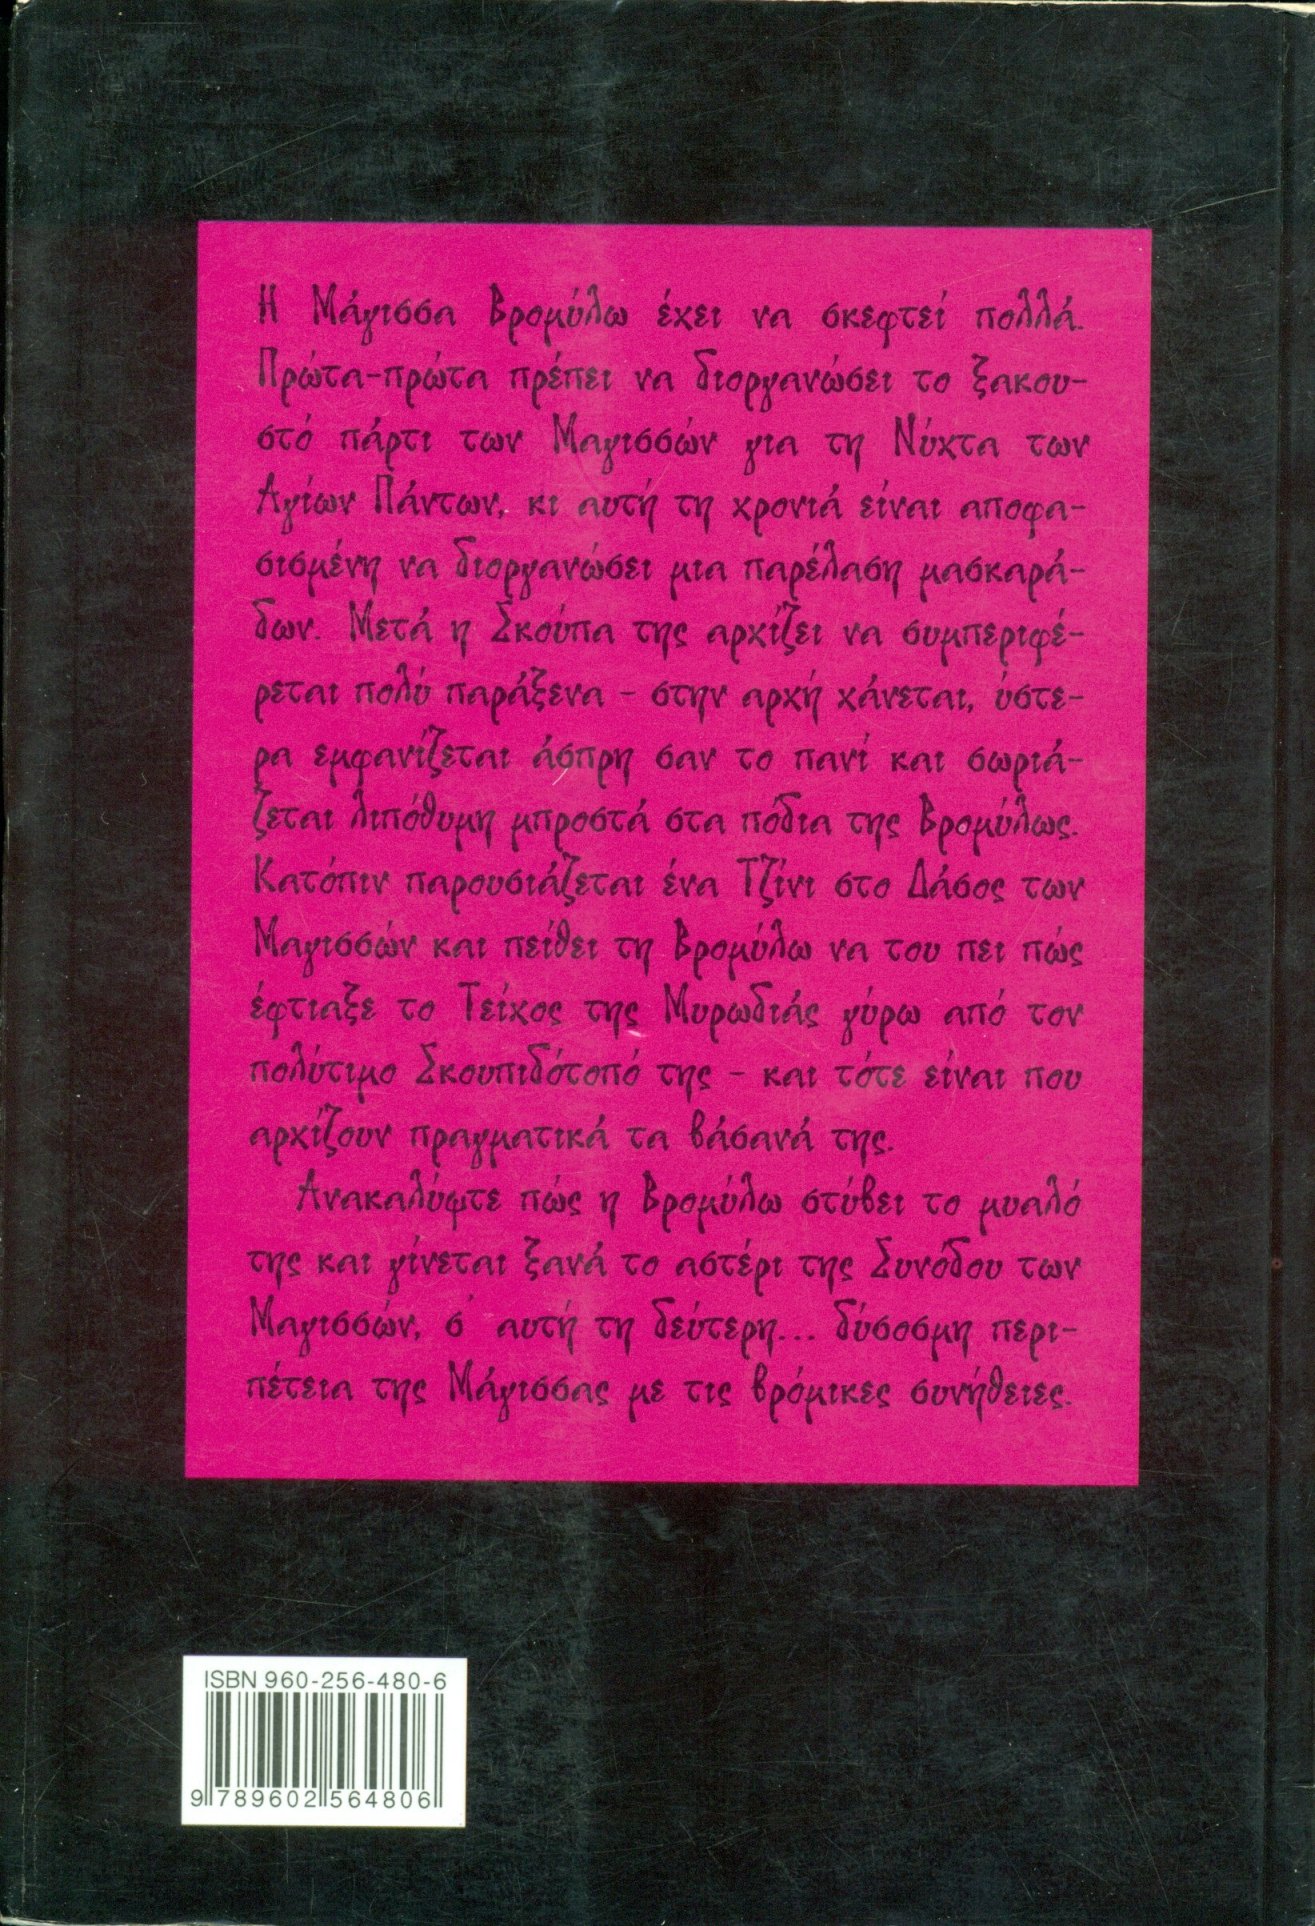 Η Μάγισσα Βρομύλω έχει να σκεφτεί πολλά.
Πρώτα-πρώτα πρέπει να διοργανώσει το ξακου-
στό πάρτι των Μαγισσών για τη Νύχτα των
Αγίων Πάντων, κι αυτή τη χρονιά είναι αποφα-
σισμένη να διοργανώσει μια παρέλαση μασκαρά-
δων. Μετά η Σκούπα της αρχίζει να συμπεριφέ-
ρεται πολύ παράξενα – στην αρχή χάνεται, ύστε-
ρα εμφανίζεται άσπρη σαν το πανί και σωριά-
ζεται λιπόθυμη μπροστά στα πόδια της Βρομύλως.
Κατόπιν παρουσιάζεται ένα Τζίνι στο Δάσος των
Μαγισσών και πείθει τη Βρομύλω να του πει πώς
έφτιαξε το Τείχος της Μυρωδιάς γύρω από τον
πολύτιμο Σκουπιδότοπό της – και τότε είναι που
αρχίζουν πραγματικά τα βάσανά της.
Ανακαλύψτε πώς η Βρομύλω στύβει το μυαλό
της και γίνεται ξανά το αστέρι της Συνόδου των
Μαγισσών, σ' αυτή τη δεύτερη... δύσοσμη περι-
πέτεια της Μάγισσας με τις βρόμικες συνήθειες.
ISBN 960-256-480-6
9 789602 564806